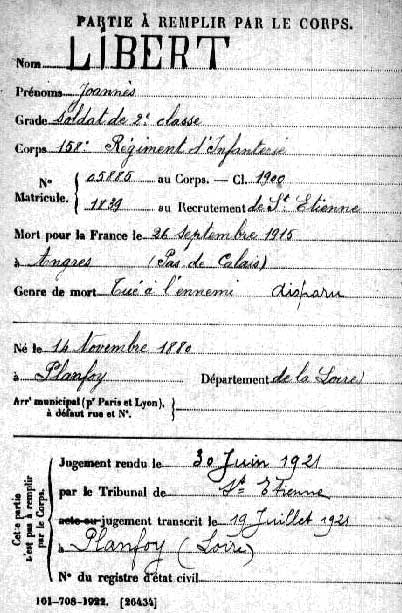 PARTIE À REMPLIR PAR LE CORPS.
Nom LIBERT
Prénoms Joannès
Grade Soldat de 2e classe
Corps 158e Régiment d'Infanterie
N° Matricule. { 05885 au Corps. — Cl. 1900
1839 au Recrutement de St Etienne
Mort pour la France le 26 septembre 1915
à Angres (Pas de Calais)
Genre de mort Tué à l'ennemi disparu
Né le 14 Novembre 1880
à Planfoy Département de la Loire
Arrt municipal (pr Paris et Lyon), à défaut rue et N°. }
Cette partie n'est pas à remplir par le Corps.
Jugement rendu le 30 Juin 1921
par le Tribunal de St Etienne
acte ou jugement transcrit le 19 Juillet 1921
à Planfoy (Loire)
N° du registre d'état civil
101-708-1922. [26434]